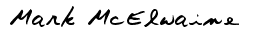 Mark McElwaine